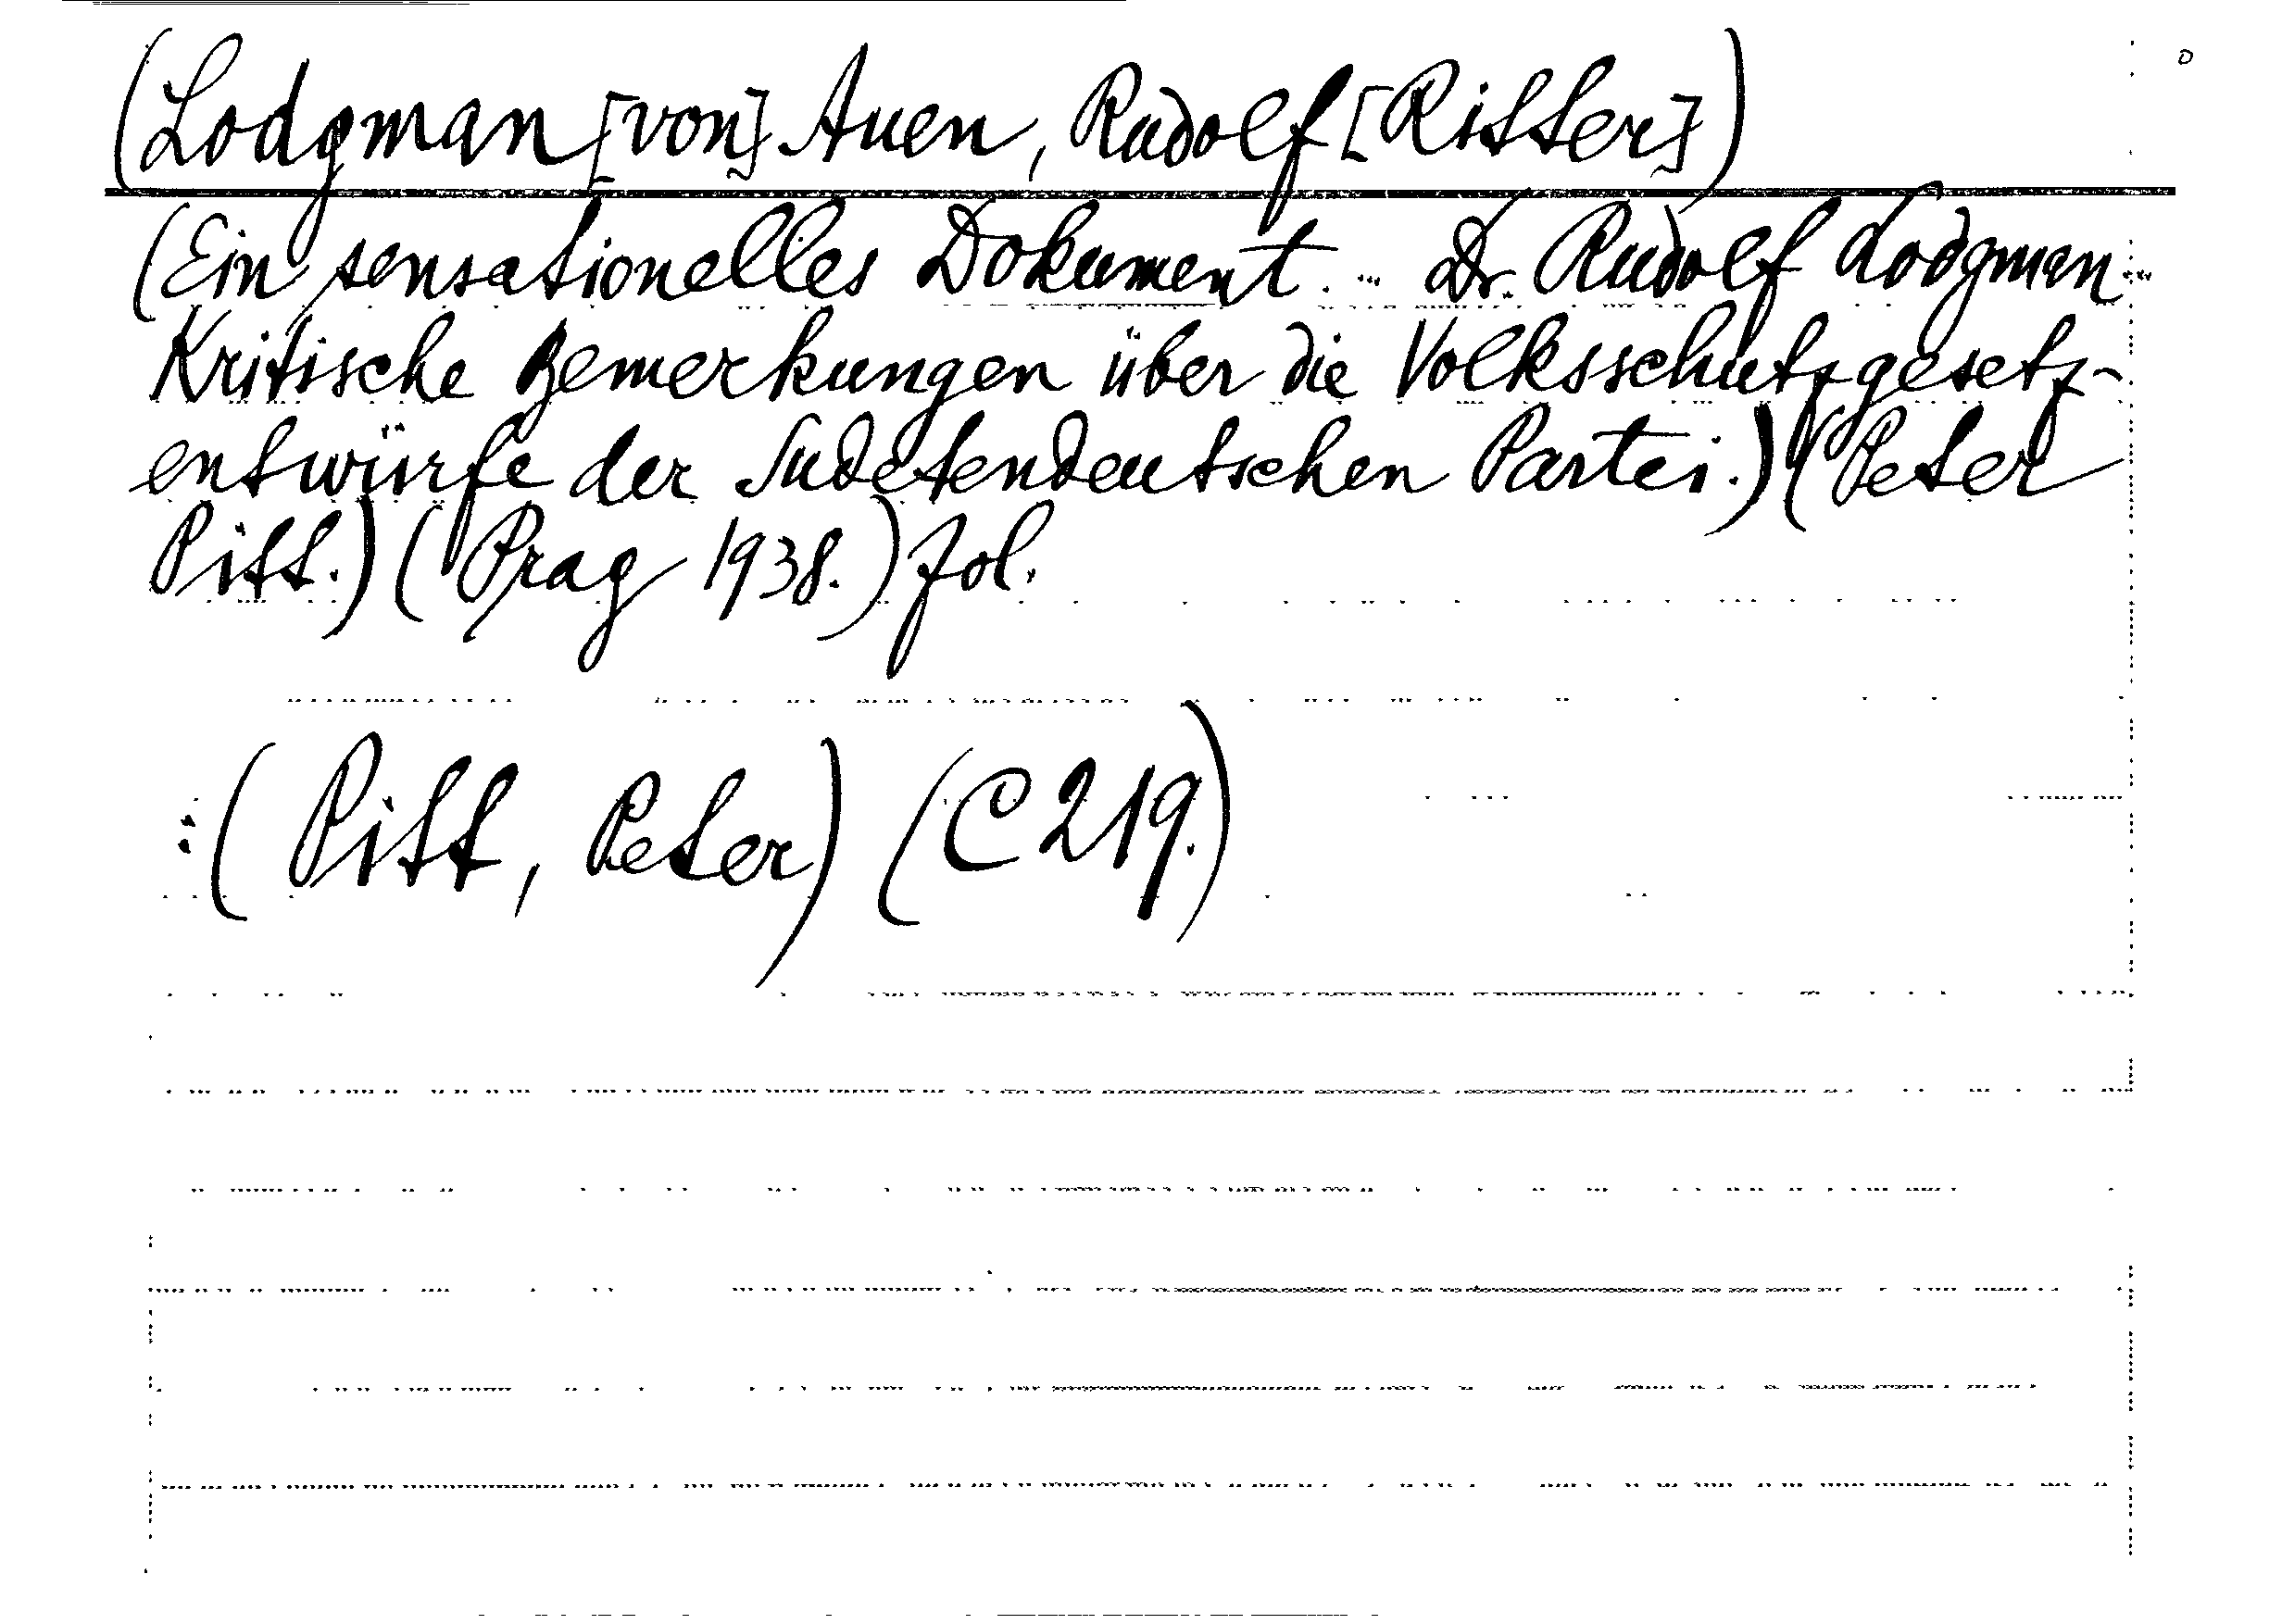 (Lodgman [von] Auen, Rudolf [Ritter])
(Ein sensationelles Dokument. ... Dr. Rudolf Lodgman...
Kritische Bemerkungen über die Volksschutzgesetz-
entwürfe der Sudetendeutschen Partei.) (Peter
Pitt.) (Prag 1938.) fol.
:(Pitt, Peter) (C 219.)